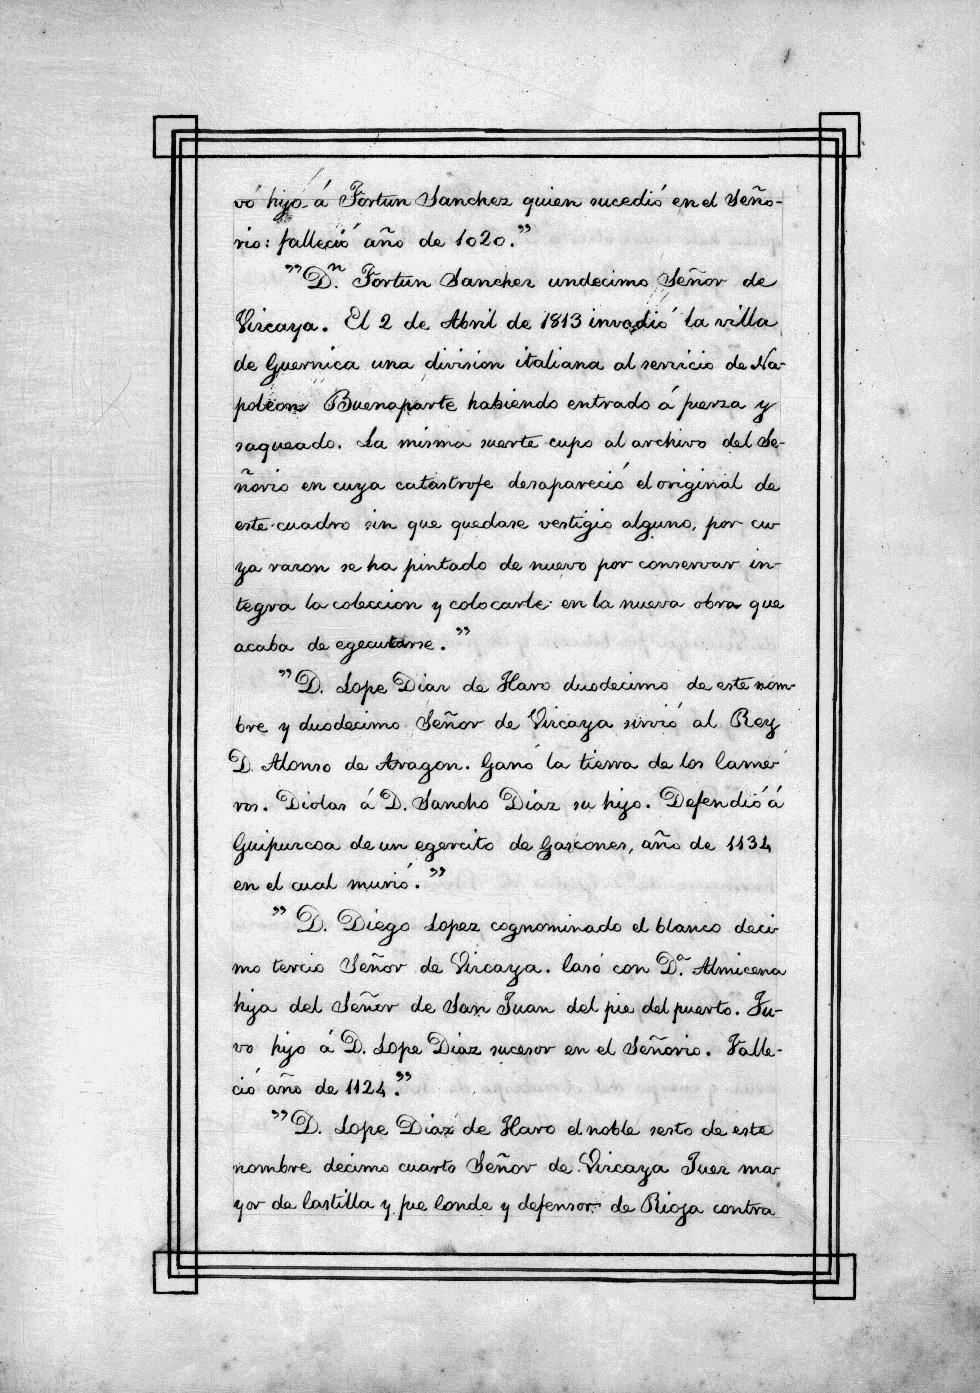 vó hijo á Fortun Sanchez quien sucedió en el Seño-
rio: falleció año de 1020."
"D.n Fortun Sanchez undecimo Señor de
Vizcaya. El 2 de Abril de 1813 invadió la villa
de Guernica una division italiana al servicio de Na-
poleon Buenaparte habiendo entrado á fuerza y
saqueado. La misma suerte cupo al archivo del Se-
ñorio en cuya catastrofe desapareció el original de
este cuadro sin que quedase vestigio alguno, por cu-
ya razon se ha pintado de nuevo por conservar in-
tegra la coleccion y colocarle en la nueva obra que
acaba de egecutarse."
"D. Lope Diaz de Haro duodecimo de este nom-
bre y duodecimo Señor de Vizcaya sirvió al Rey
D. Alonso de Aragon. Ganó la tierra de los Came-
ros. Diolas á D. Sancho Diaz su hijo. Defendió á
Guipuzcoa de un egercito de Gascones, año de 1134
en el cual murió."
"D. Diego Lopez cognominado el blanco deci-
mo tercio Señor de Vizcaya. Casó con D.a Almicena
hija del Señor de San Juan del pie del puerto. Tu-
vo hijo á D. Lope Diaz sucesor en el Señorio. Falle-
ció año de 1124."
"D. Lope Diaz de Haro el noble sesto de este
nombre decimo cuarto Señor de Vizcaya Juez ma-
yor de Castilla y fue Conde y defensor de Rioja contra